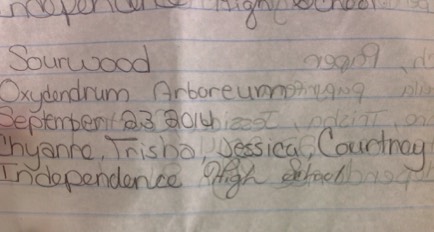 Independence High School
Sourwood
Oxydendrum Arboreum
September 23 2014
Chyanne, Trisha, Jessica, Courtney
Independence High School